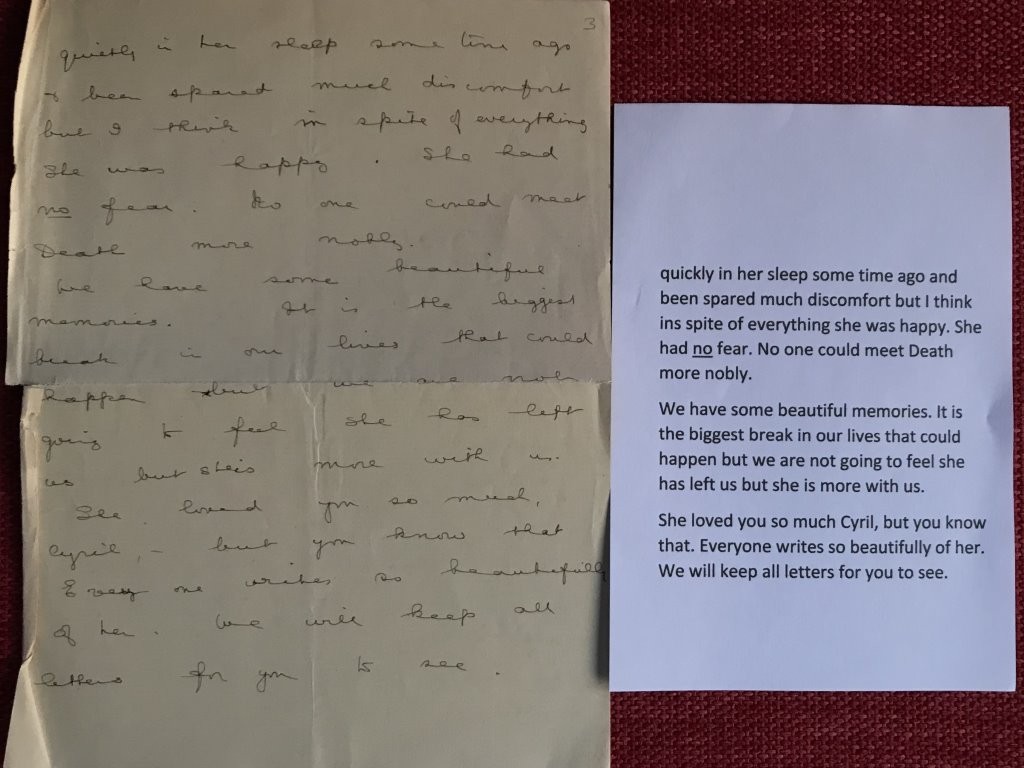 3
quietly in her sleep some time ago
& been spared much discomfort
but I think in spite of everything
she was happy. She had
no fear. No one could meet
Death more nobly.
We have some beautiful
memories. It is the biggest
break in our lives that could
happen but we are not
going to feel she has left
us but she is more with us.
She loved you so much,
Cyril, – but you know that
Every one writes so beautifully
of her. We will keep all
letters for you to see.
quickly in her sleep some time ago and
been spared much discomfort but I think
ins spite of everything she was happy. She
had no fear. No one could meet Death
more nobly.
We have some beautiful memories. It is
the biggest break in our lives that could
happen but we are not going to feel she
has left us but she is more with us.
She loved you so much Cyril, but you know
that. Everyone writes so beautifully of her.
We will keep all letters for you to see.